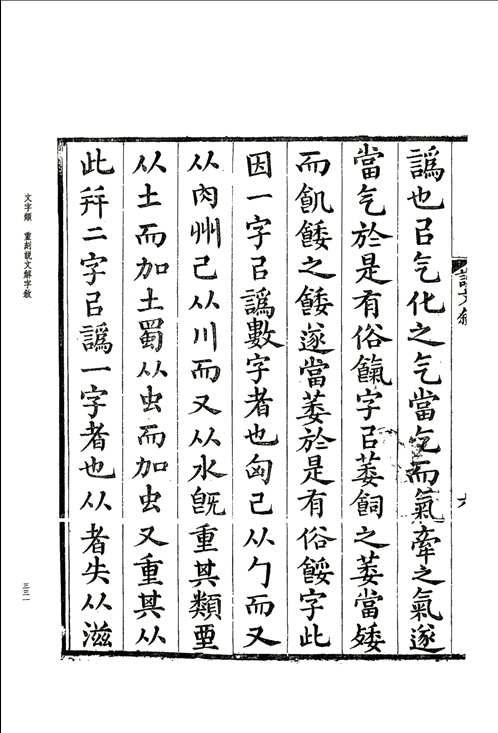 譌也㠯气化之气當气而氣牽之氣遂
當气於是有俗餼字㠯萎飼之萎當矮
而飢餧之餧遂當萎於是有俗餒字此
因一字㠯譌數字者也匈己从勹而又
从肉州己从川而又从水旣重其類垔
从土而加土蜀从虫而加虫又重其从
此幷二字㠯譌一字者也从者失从滋
文字類 重刻說文解字敘
三三一